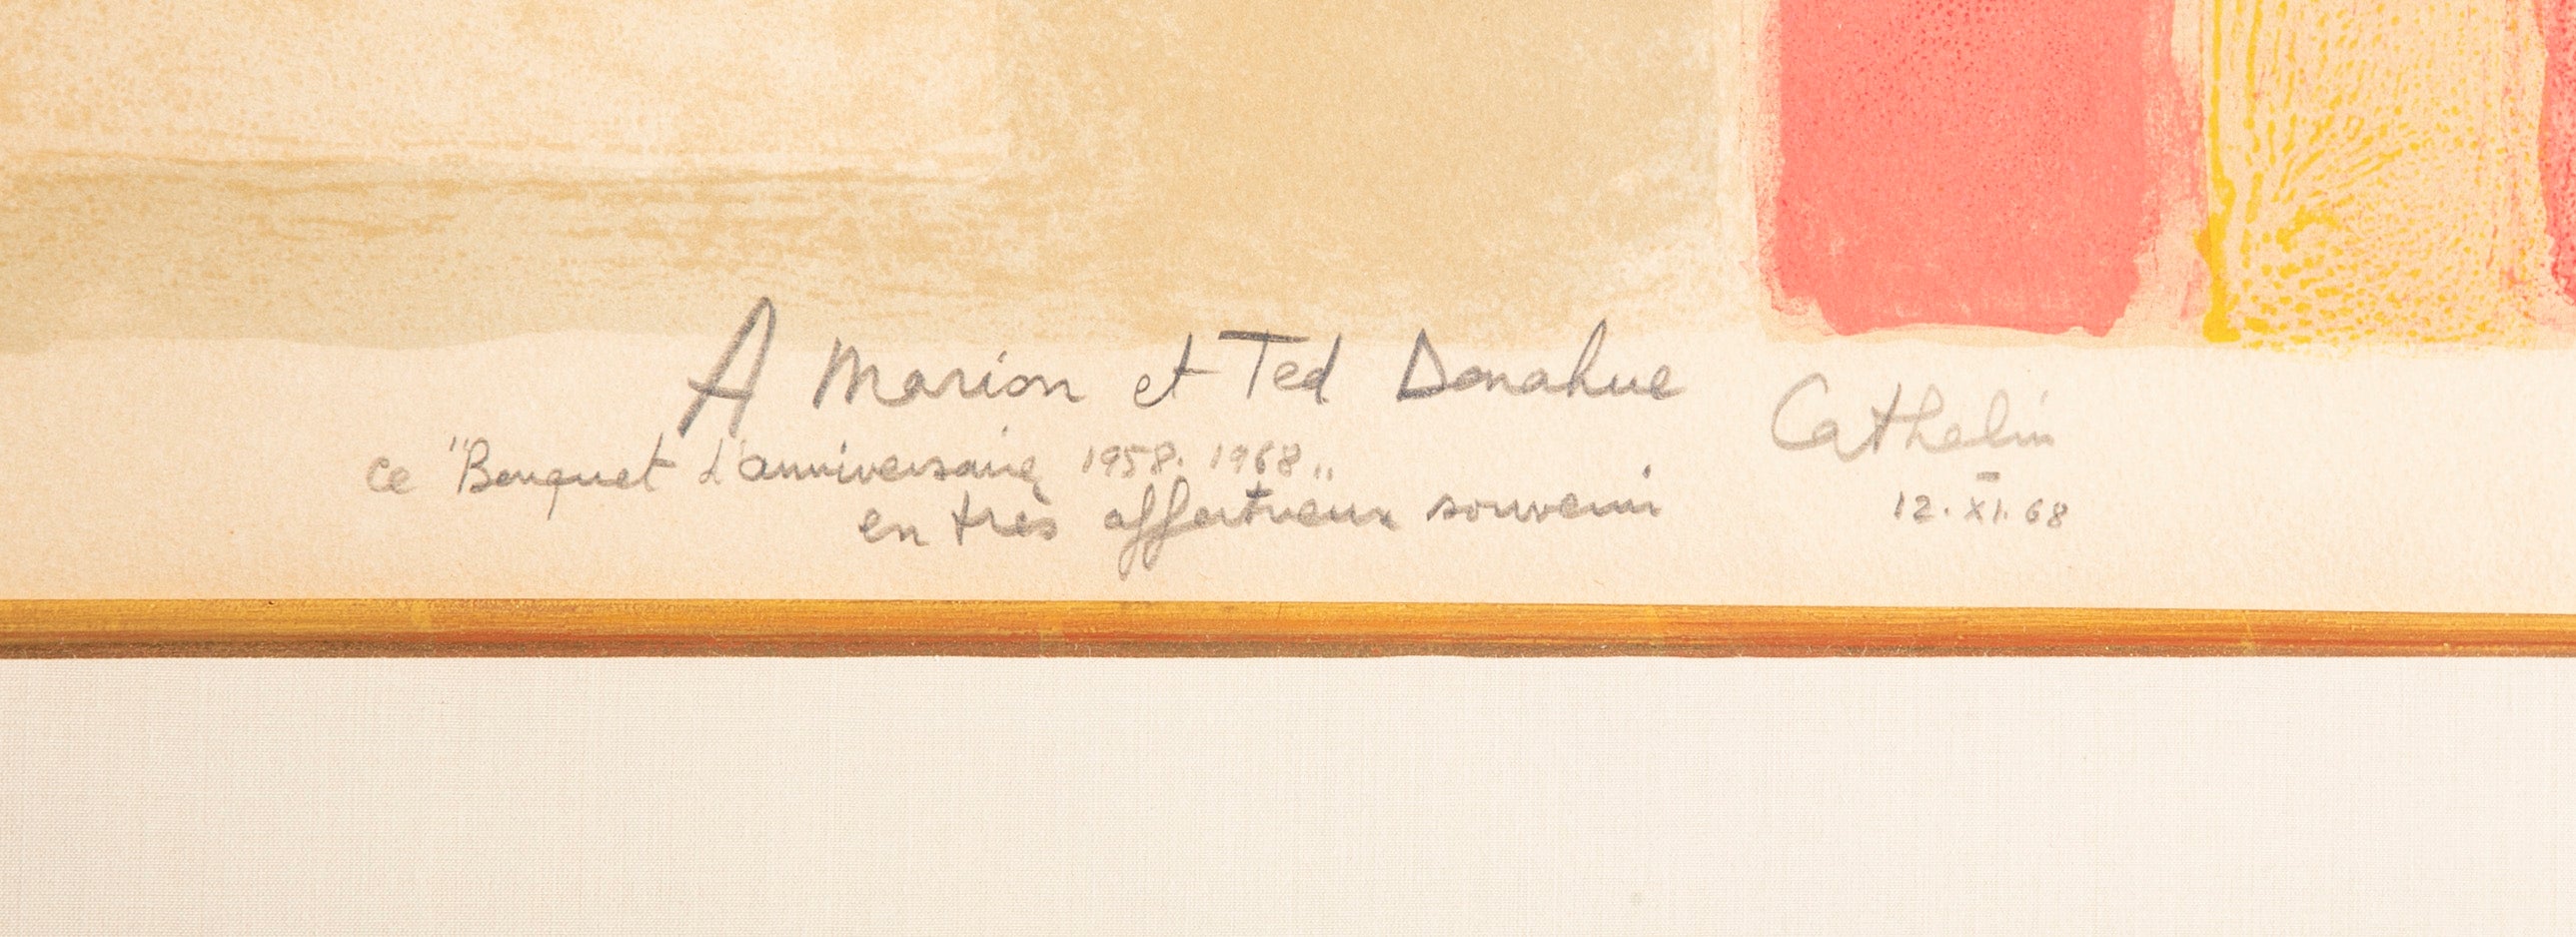 A Marion et Ted Donahue
ce "Bouquet d'anniversaire 1958. 1968"
en très affectueux souvenir
Cathelin
12.XI.68